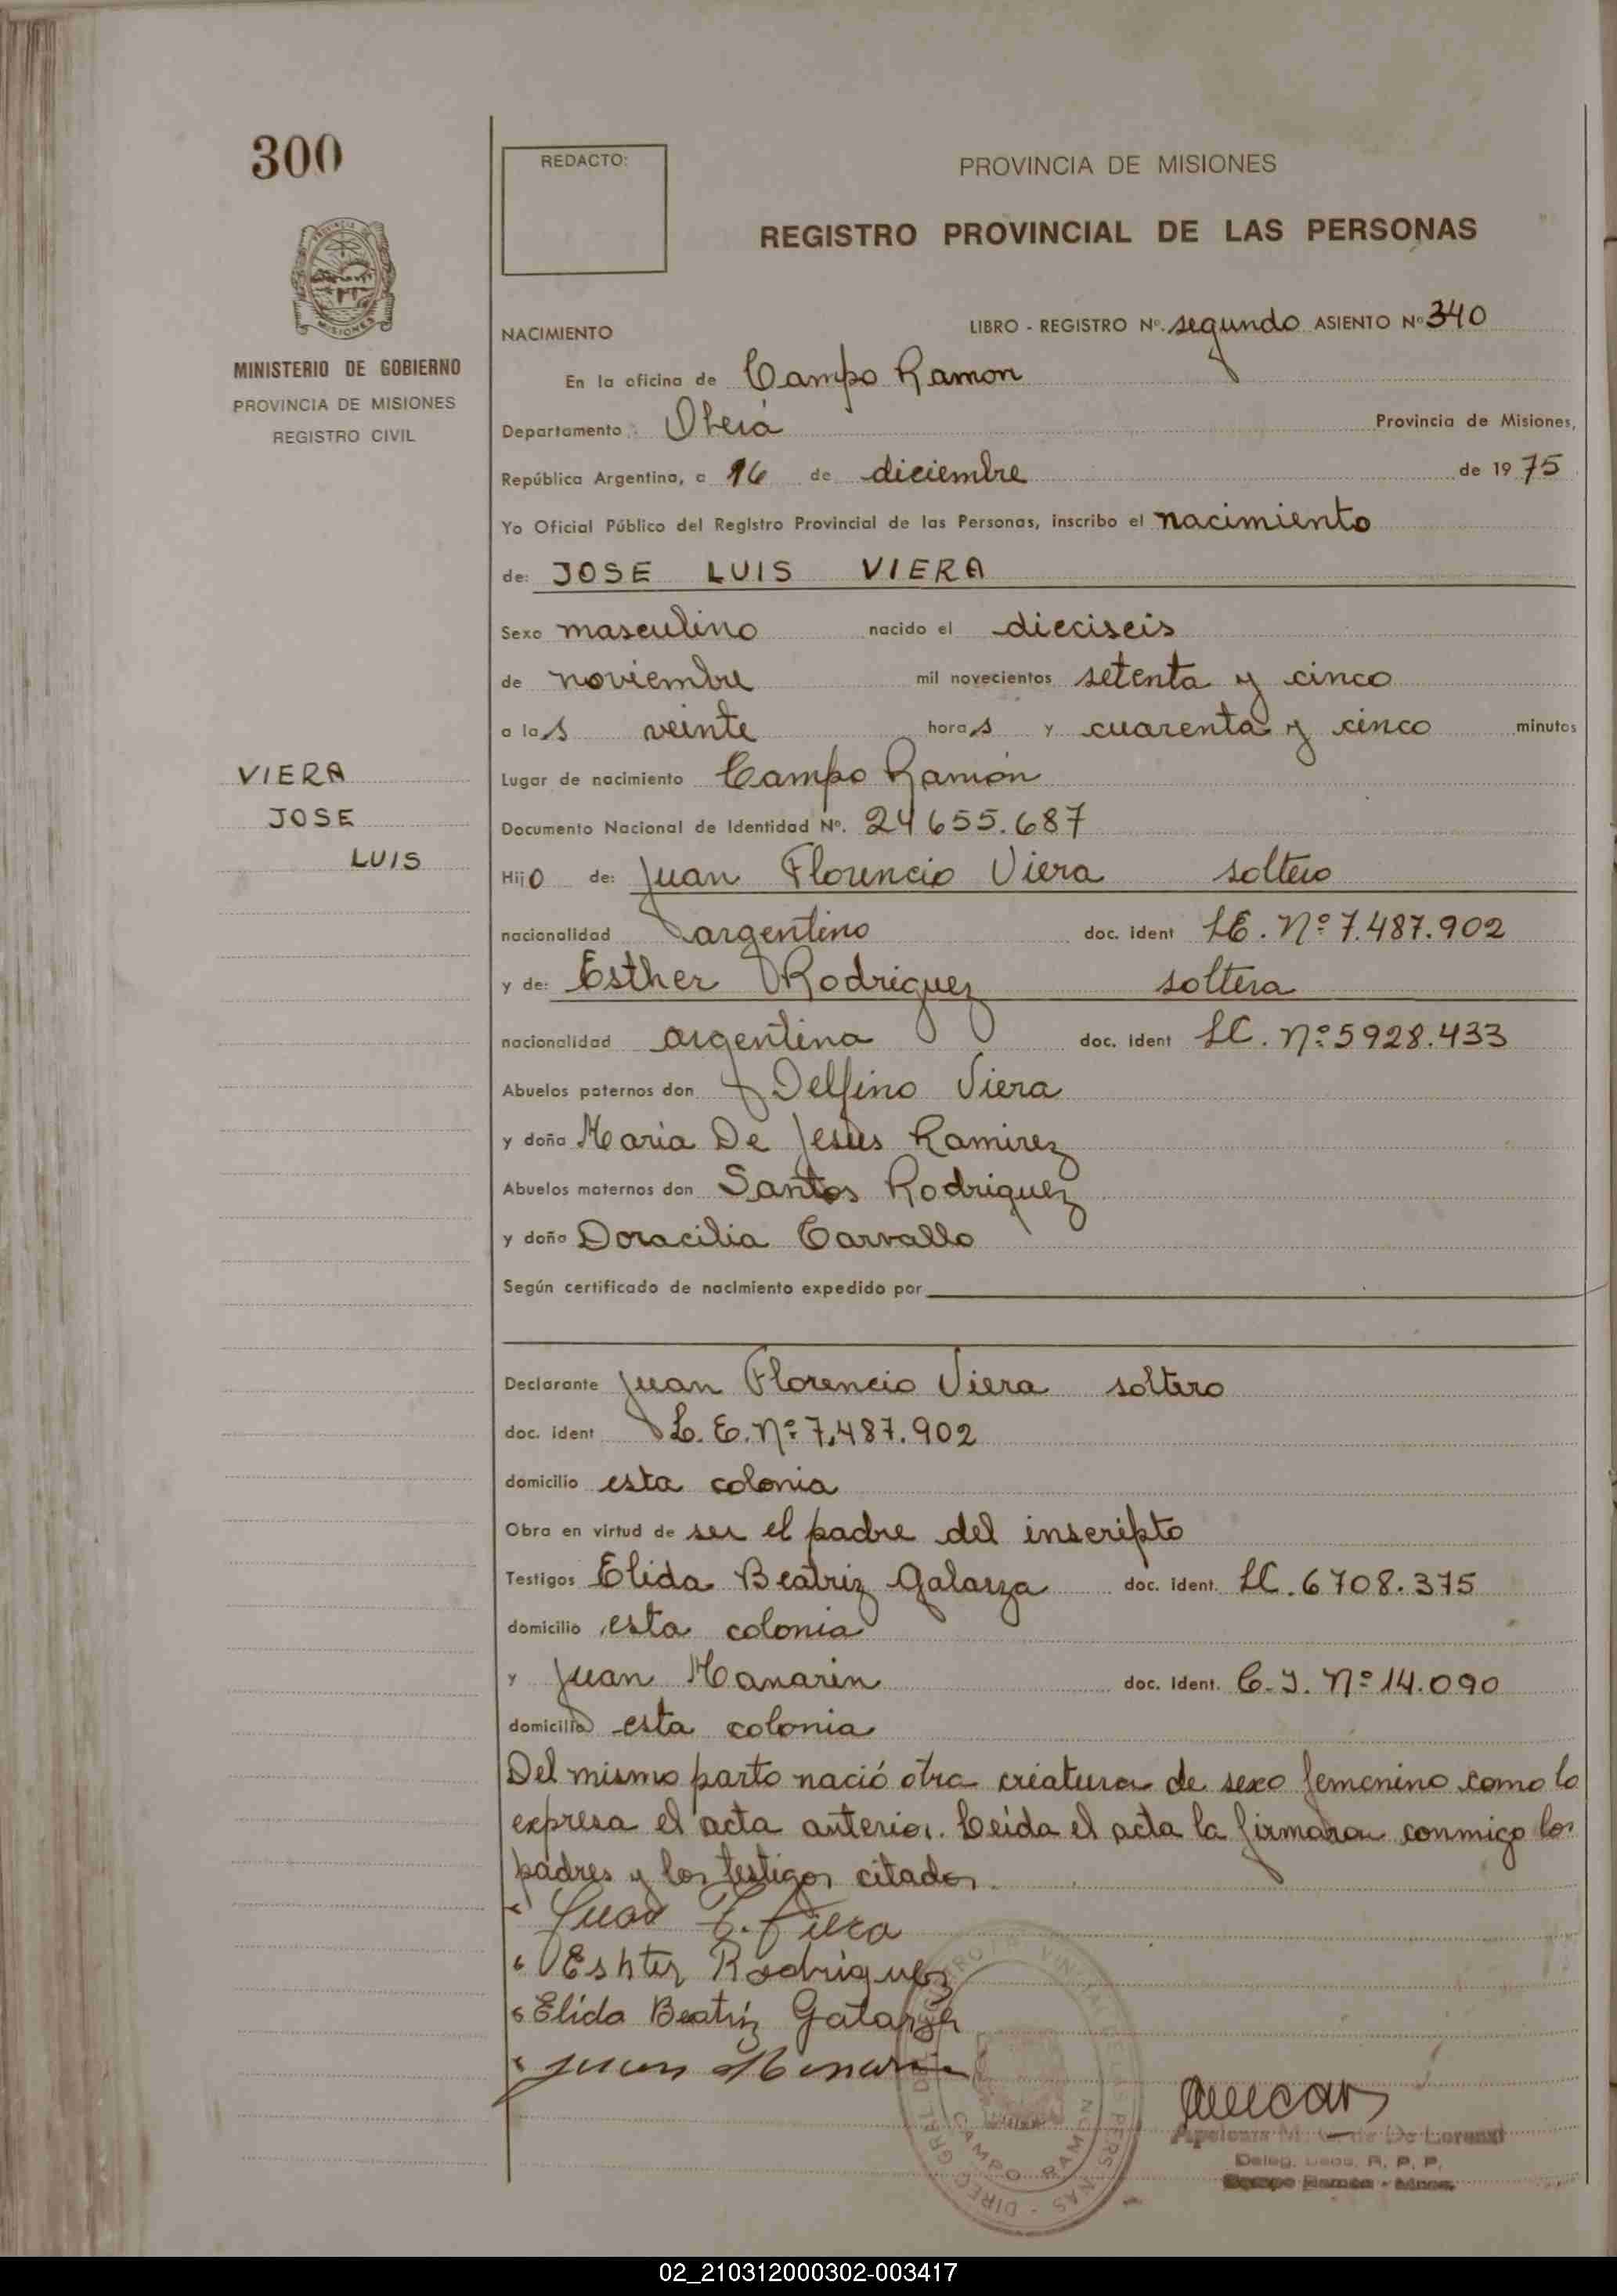 300
REDACTO:
PROVINCIA DE MISIONES
REGISTRO PROVINCIAL DE LAS PERSONAS
MISIONES
MINISTERIO DE GOBIERNO
PROVINCIA DE MISIONES
REGISTRO CIVIL
NACIMIENTO LIBRO - REGISTRO Nº. segundo ASIENTO Nº 340
En la oficina de Campo Ramon
Departamento: Oberá Provincia de Misiones,
República Argentina, a 16 de diciembre de 19 75
Yo Oficial Público del Registro Provincial de las Personas, inscribo el nacimiento
de: JOSE LUIS VIERA
Sexo masculino nacido el dieciseis
de noviembre mil novecientos setenta y cinco
a las veinte horas y cuarenta y cinco minutos
VIERA
JOSE
LUIS
Lugar de nacimiento Campo Ramón
Documento Nacional de Identidad Nº. 24655.687
Hijo de: Juan Florencio Viera soltero
nacionalidad argentino doc. ident LE. Nº 7.487.902
y de: Esther Rodriguez soltera
nacionalidad argentina doc. ident LC. Nº 5928.433
Abuelos paternos don Delfino Viera
y doña Maria De Jesús Ramirez
Abuelos maternos don Santos Rodriguez
y doña Doracilia Carvallo
Según certificado de nacimiento expedido por
Declarante Juan Florencio Viera soltero
doc. ident L.E. Nº 7.487.902
domicilio esta colonia
Obra en virtud de ser el padre del inscripto
Testigos Elida Beatriz Galarza doc. ident. LC. 6708.375
domicilio esta colonia
y Juan Manarin doc. ident. C.I. Nº 14.090
domicilio esta colonia
Del mismo parto nació otra criatura de sexo femenino como lo
expresa el acta anterior. Leída el acta la firmaran conmigo los
padres y los testigos citados.
Juan F. Viera
Eshter Rodriguez
Elida Beatriz Galarza
Juan Manarin
CAMPO RAMON
De Lorenzi
Deleg. R. P. P.
Campo Ramón - Mnes.
02_210312000302-003417